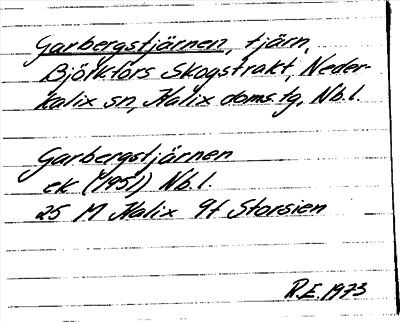 Garbergstjärnen, tjärn,
Björkfors Skogstrakt, Neder-
kalix sn, Kalix doms.tg, Nb.l.
Garbergstjärnen
ek. (1951) Nb.l.
25 M Kalix 9f Storsien
R.E. 1973